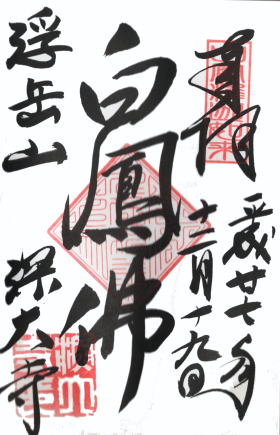 奉拝
平成廿七年
十二月十九日
白鳳佛
浮岳山
深大寺